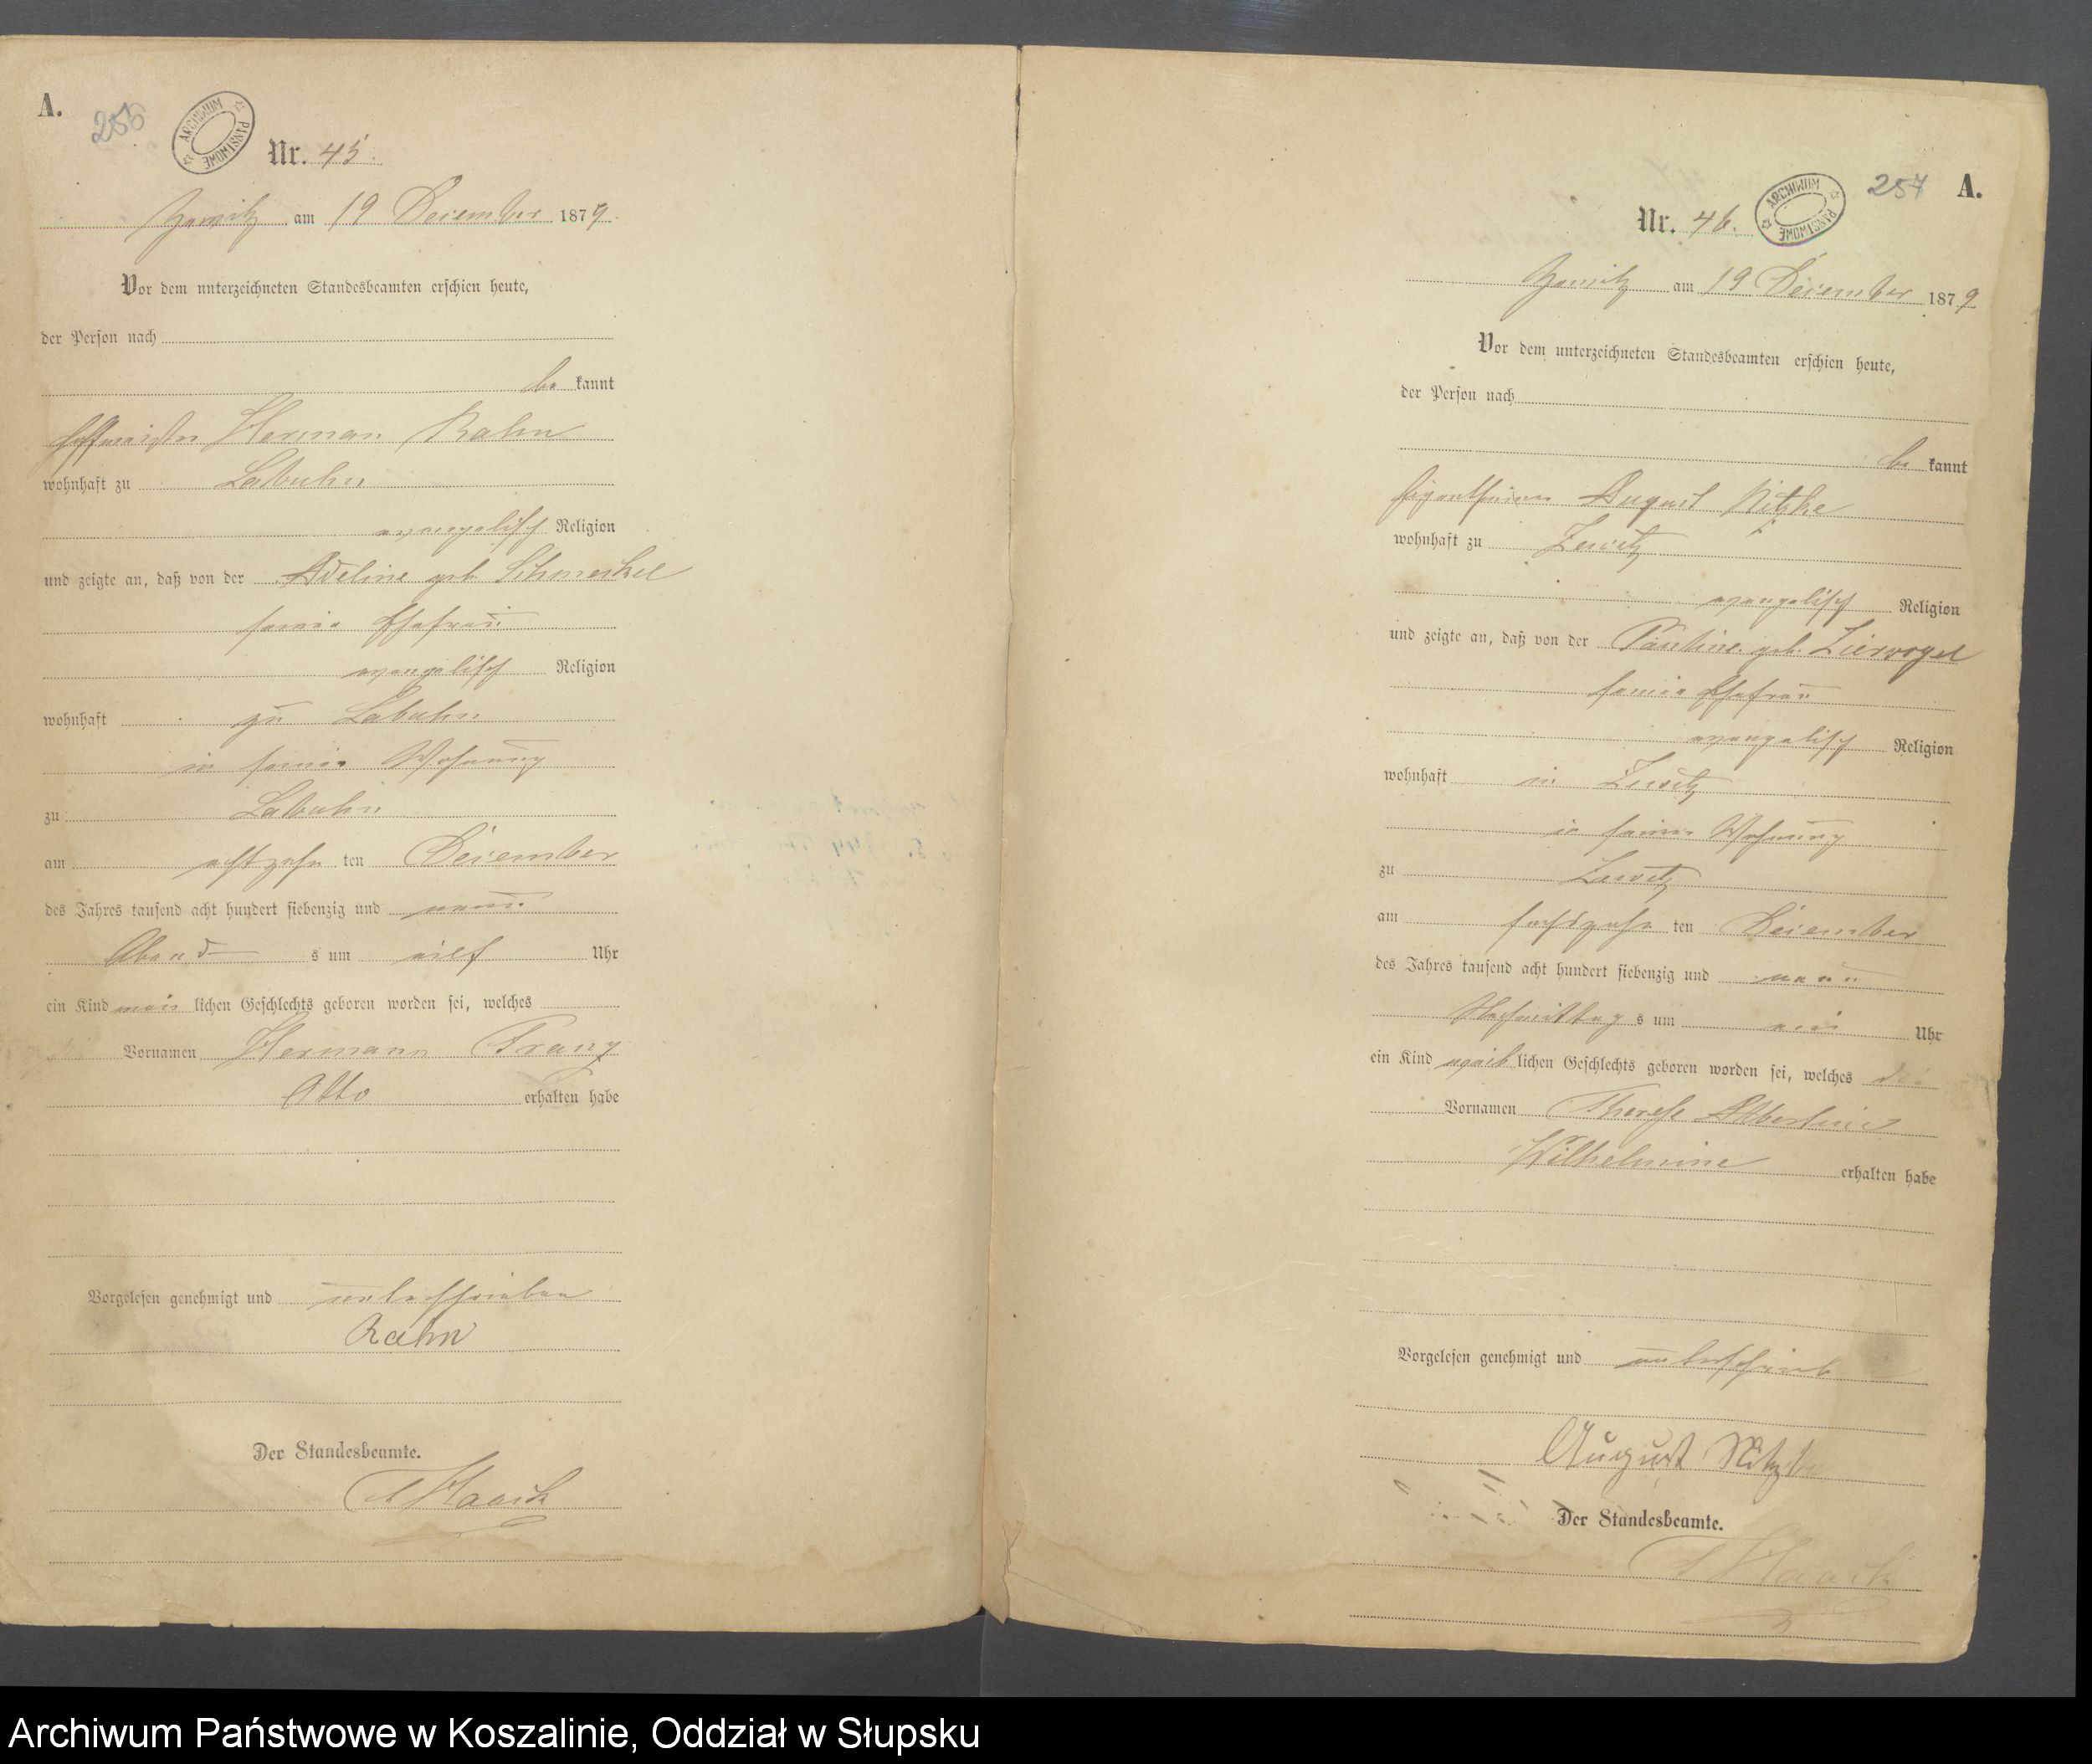 A.
256
ARCHIWUM PAŃSTWOWE
Nr. 45.
am 19 December 1879.
Vor dem unterzeichneten Standesbeamten erschien heute,
der Person nach
be kannt
Hofmeister Herman Rahn
wohnhaft zu Labuhn
evangelisch Religion
und zeigte an, daß von der Adeline geb. Schmeckel
seine Ehefrau
evangelisch Religion
wohnhaft zu Labuhn
in seine Wohnung
zu Labuhn
am achtzehn ten December
des Jahres tausend acht hundert siebenzig und neun
Abend s um eilf Uhr
ein Kind män lichen Geschlechts geboren worden sei, welches
Vornamen Hermann Franz
Otto erhalten habe
Vorgelesen genehmigt und unterschrieben
Rahn
Der Standesbeamte.
257 A.
ARCHIWUM PAŃSTWOWE
Nr. 46.
am 19 December 1879
Vor dem unterzeichneten Standesbeamten erschien heute,
der Person nach
be kannt
Eigenthümer August Nitzke
wohnhaft zu Zewitz
evangelisch Religion
und zeigte an, daß von der Pauline geb. Ziervogel
seine Ehefrau
evangelisch Religion
wohnhaft in Zewitz
in seiner Wohnung
zu Zewitz
am sechszehn ten December
des Jahres tausend acht hundert siebenzig und neun
Nachmittag s um ein Uhr
ein Kind weib lichen Geschlechts geboren worden sei, welches die
Vornamen Therese Albertine
Wilhelmine erhalten habe
Vorgelesen genehmigt und unterschrieb
August Nitzke
Der Standesbeamte.
Archiwum Państwowe w Koszalinie, Oddział w Słupsku